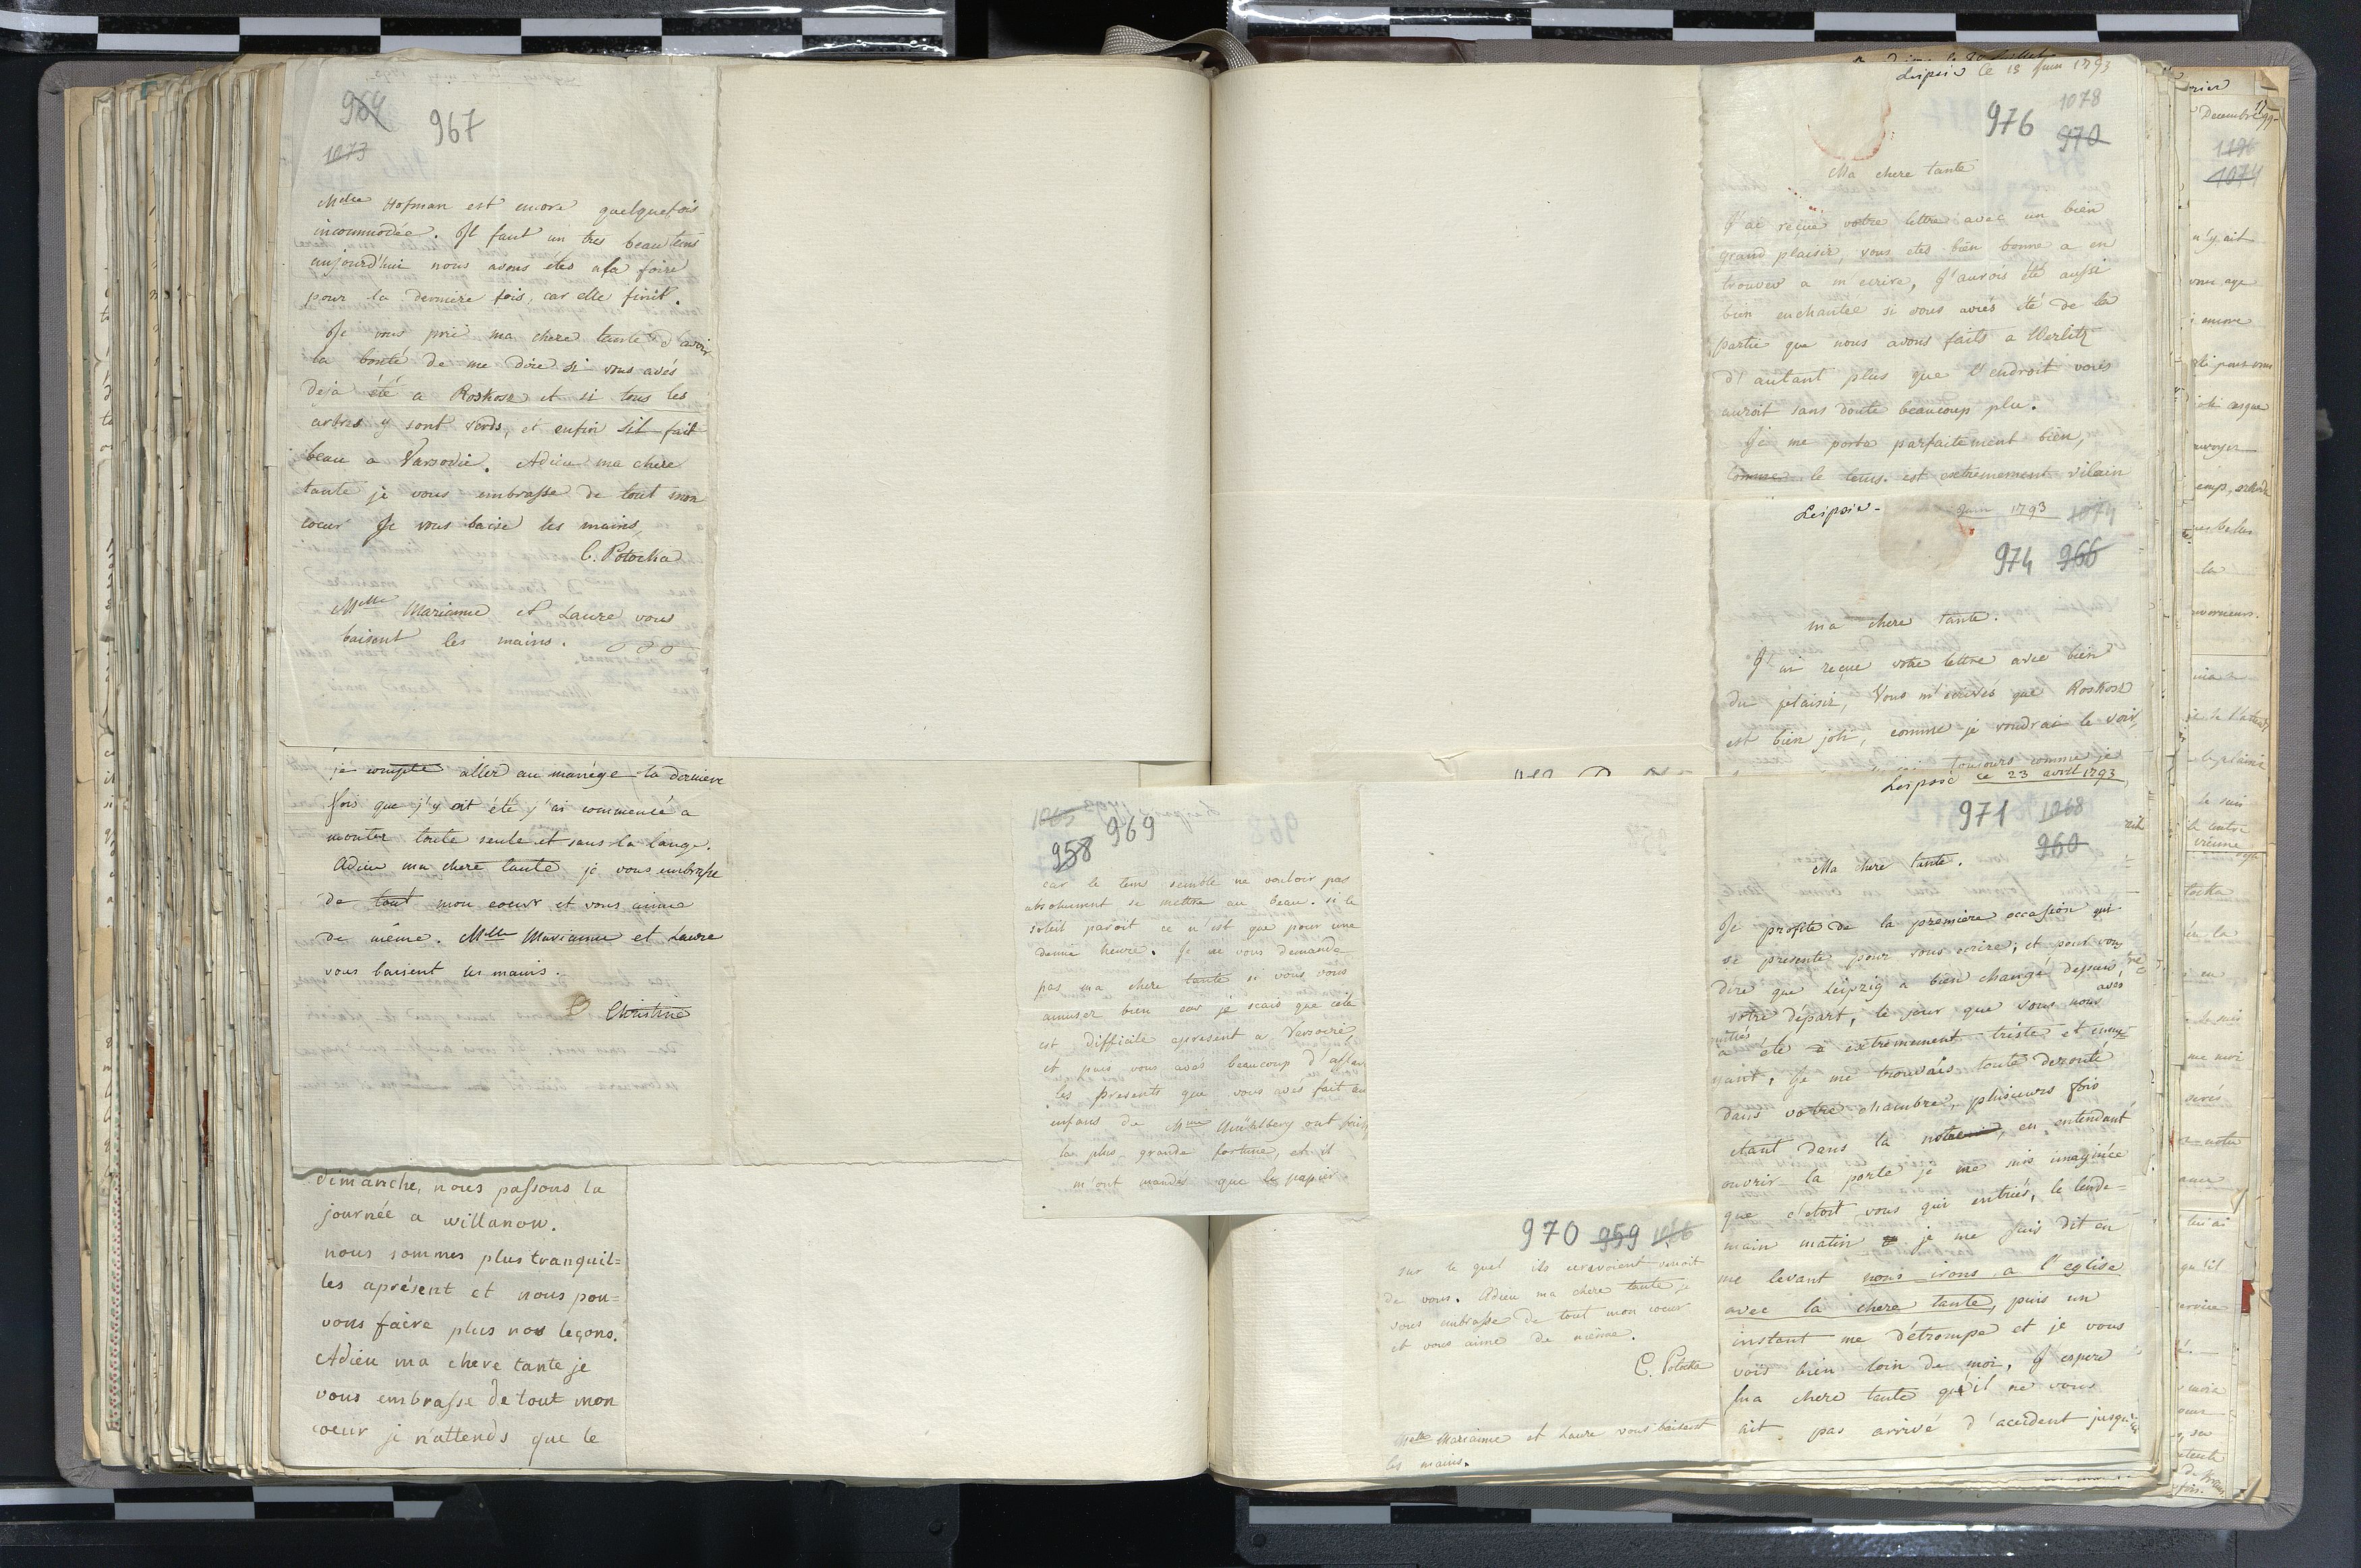 964 967
1073
Mdme Hofman est encore quelquefois
incommodée. Il faut un tres beau tems
aujourd'hui nous avons étés a la foire
pour la derniere fois, car elle finit.
Je vous prie ma chere tante d'avoir
la bonté de me dire si vous avés
deja été a Roskosz et si tous les
arbres y sont verds, et enfin sil fait
beau a Varsovie. Adieu ma chere
tante je vous embrasse de tout mon
coeur Je vous baise les mains
C. Potocka
Melle Marianne et Laure vous
baisent les mains.
je compte aller au manège la derniere
fois que j'y ait été j'ai commencé a
monter toute seule et sans la longe.
Adieu ma chere tante je vous embrasse
de tout mon coeur et vous aime
de même. Melle Marianne et Laure
vous baisent les mains.
Christine
dimanche, nous passons la
journée a willanow.
nous sommes plus tranquil=
les aprésent et nous pou=
vons faire plus nos leçons.
Adieu ma chere tante je
vous embrasse de tout mon
coeur je n'attends que le
1065 969
958
car le tems semble ne vouloir pas
absolument se mettre au beau. si le
soleil paroit ce n'est que pour une
demie heure. Je ne vous demande
pas ma chere tante si vous vous
amusez bien car je scais que cela
est difficile apresent a Varsovie
et puis vous avés beaucoup d'affaires
les presents que vous avés fait aux
enfans de Mme Mühlberg ont fait
la plus grande fortune, et il
m'ont mandés que le papier
970 959 1066
sur le quel ils ecrivoient venoit
de vous. Adieu ma chere tante je
vous embrasse de tout mon coeur
et vous aime de même.
C. Potocka
Melle Marianne et Laure vous baisent
les mains.
Leipsic le 18 Juin 1793
1078
976 970
Ma chere tante
J'ai reçue votre lettre avec un bien
grand plaisir, vous etes bien bonne a en
trouver a m'ecrire, J'aurois été aussi
bien enchantée si vous aviés été de la
partie que nous avons faits a Werlitz
d'autant plus que l'endroit vous
auroit sans doute beaucoup plu.
Je me porte parfaitement bien,
comme le tems est extremement vilain
Leipsic - Juin 1793 1074
974 966
ma chere tante.
J'ai reçue votre lettre avec bien
du plaisir, Vous m'ecrivés que Roskosz
est bien joli, comme je voudrai le voir,
toujours comme je
Leipsic ce 23 avril 1793
971 1068
960
Ma chere tante.
Je profite de la premiere occasion qui
se presente pour vous ecrire, et pour vous
dire que Leipzig a bien changé depuis
votre départ, le jour que vous nous avés
quittés
a été extremement triste et ennu=
yant, Je me trouvais toute derouté
dans votre chambre, plusieurs fois
etant dans la notre, en entendant
ouvrir la porte je me suis imaginée
que c'etoit vous qui entriés, le lende=
main matin je me suis dit en
me levant nous irons a l'eglise
avec la chere tante, puis un
instant me détrompe et je vous
vois bien loin de moi, J'espere
ma chere tante qu'il ne vous
ait pas arrivé d'accident jusqu'ici
Decembre
1196
1074
n'y ait